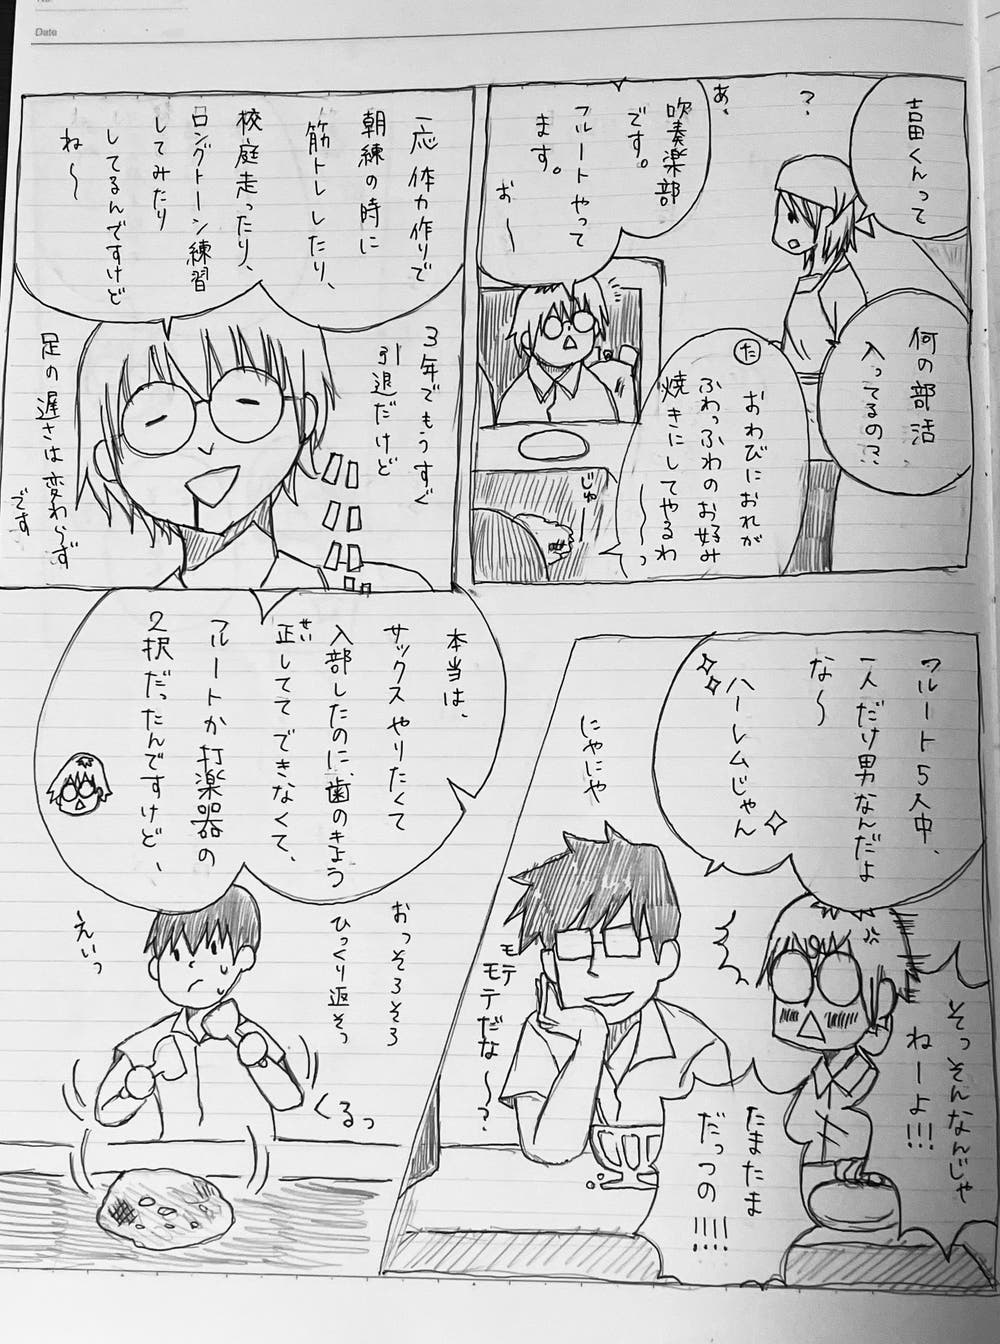 Date
吉田くんって
何の部活
入ってるの??
?
あ、
吹奏楽部
です。
フルートやって
ます。
お〜
た
おわびにおれが
ふわっふわのお好み
焼きにしてやるわ
〜〜っ
じゅー
一応 体力作りで
朝練の時に
筋トレしたり、
校庭走ったり、
ロングトーン練習
してみたり
してるんですけど
ね〜
3年でもうすぐ
引退だけど
足の遅さは変わらず
です
フルート5人中、
一人だけ男なんだよ
な〜
ハーレムじゃん
にゃにゃ
モテ
モテだな〜?
そっそんなんじゃ
ねーよ!!!
たまたま
だっつの!!!!
本当は、
サックスやりたくて
入部したのに、歯のきょう
正してて できなくて、
せい
フルートか打楽器の
2択だったんですけど、
おっそろそろ
ひっくり返そっ
えいっ
くるっ